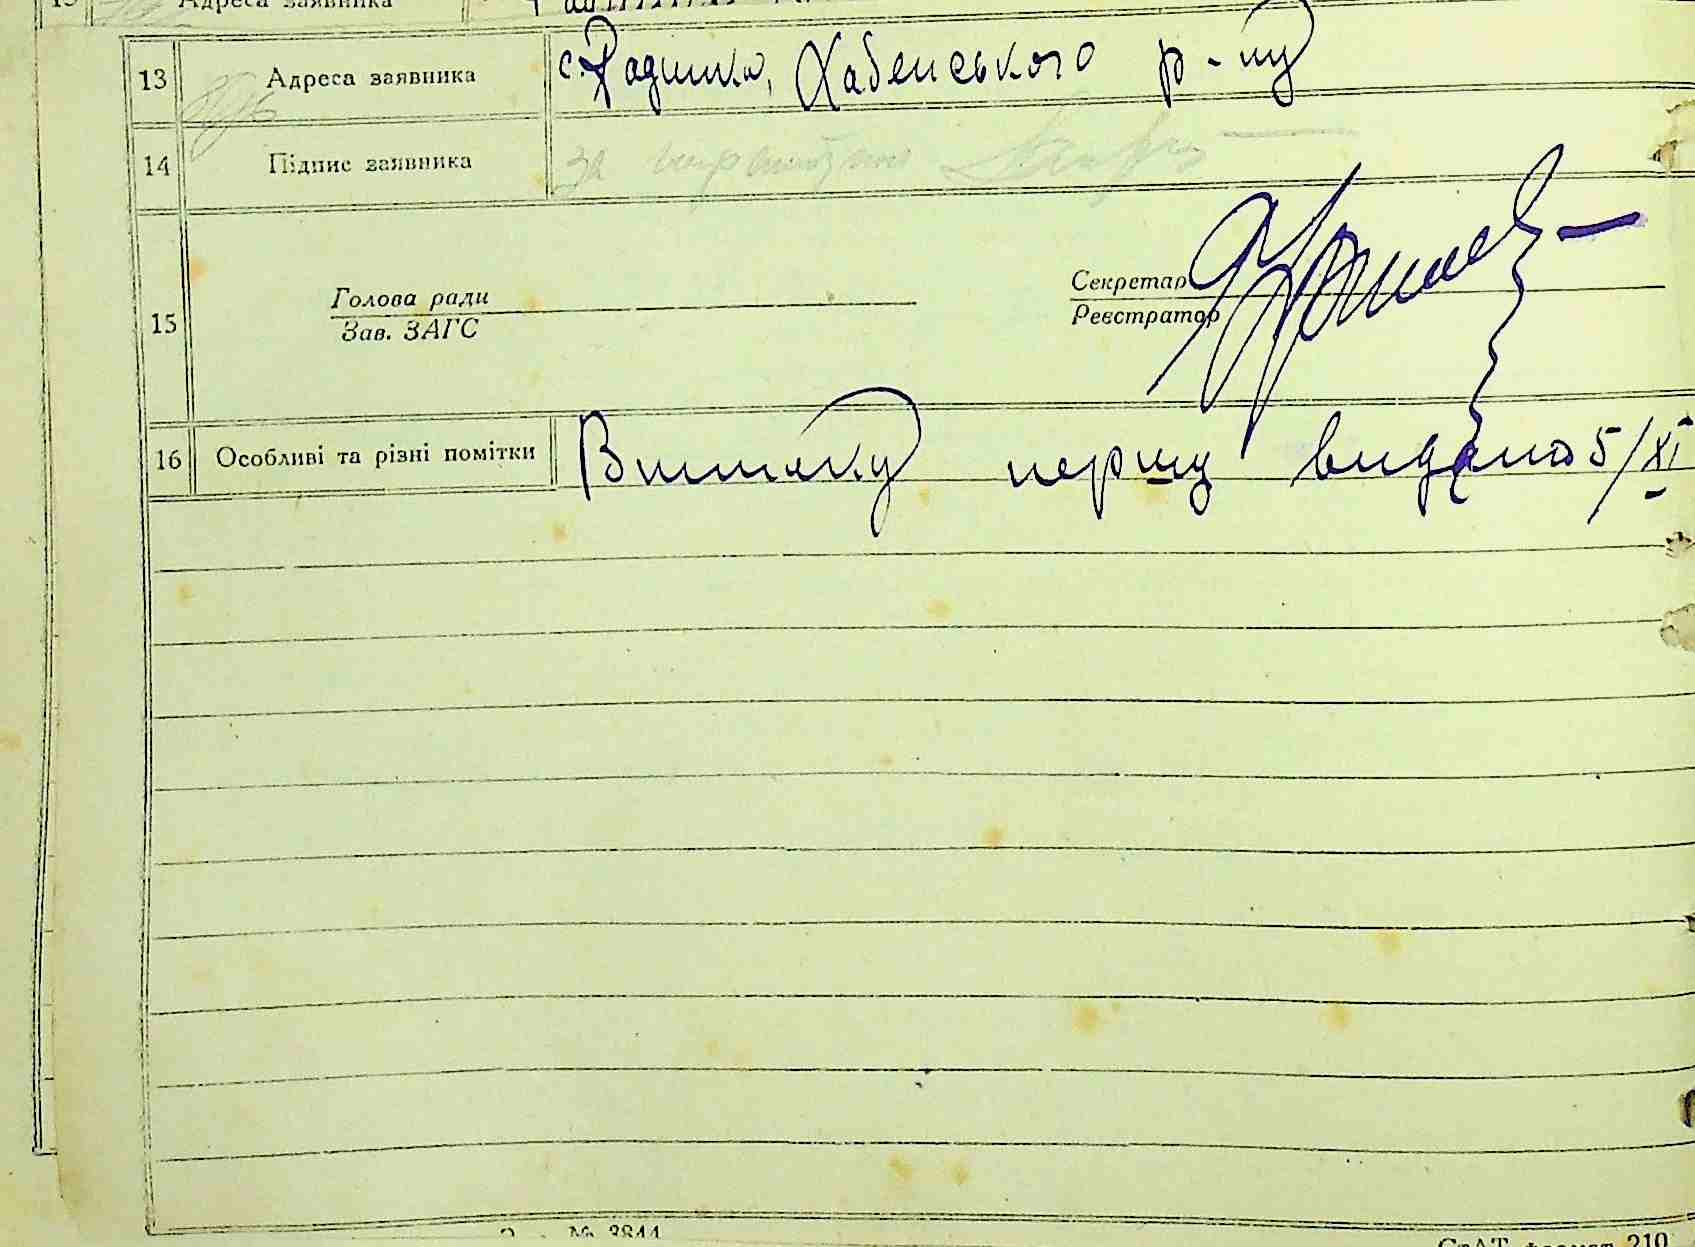 Адреса заявника
13 Адреса заявника с. Радинка, Хабенського р-ну
14 Підпис заявника за
15 Голова ради Секретар
Зав. ЗАГС Реєстратор
16 Особливі та різні помітки Виписку першу видано 5/XI
№ 3844
формат 210